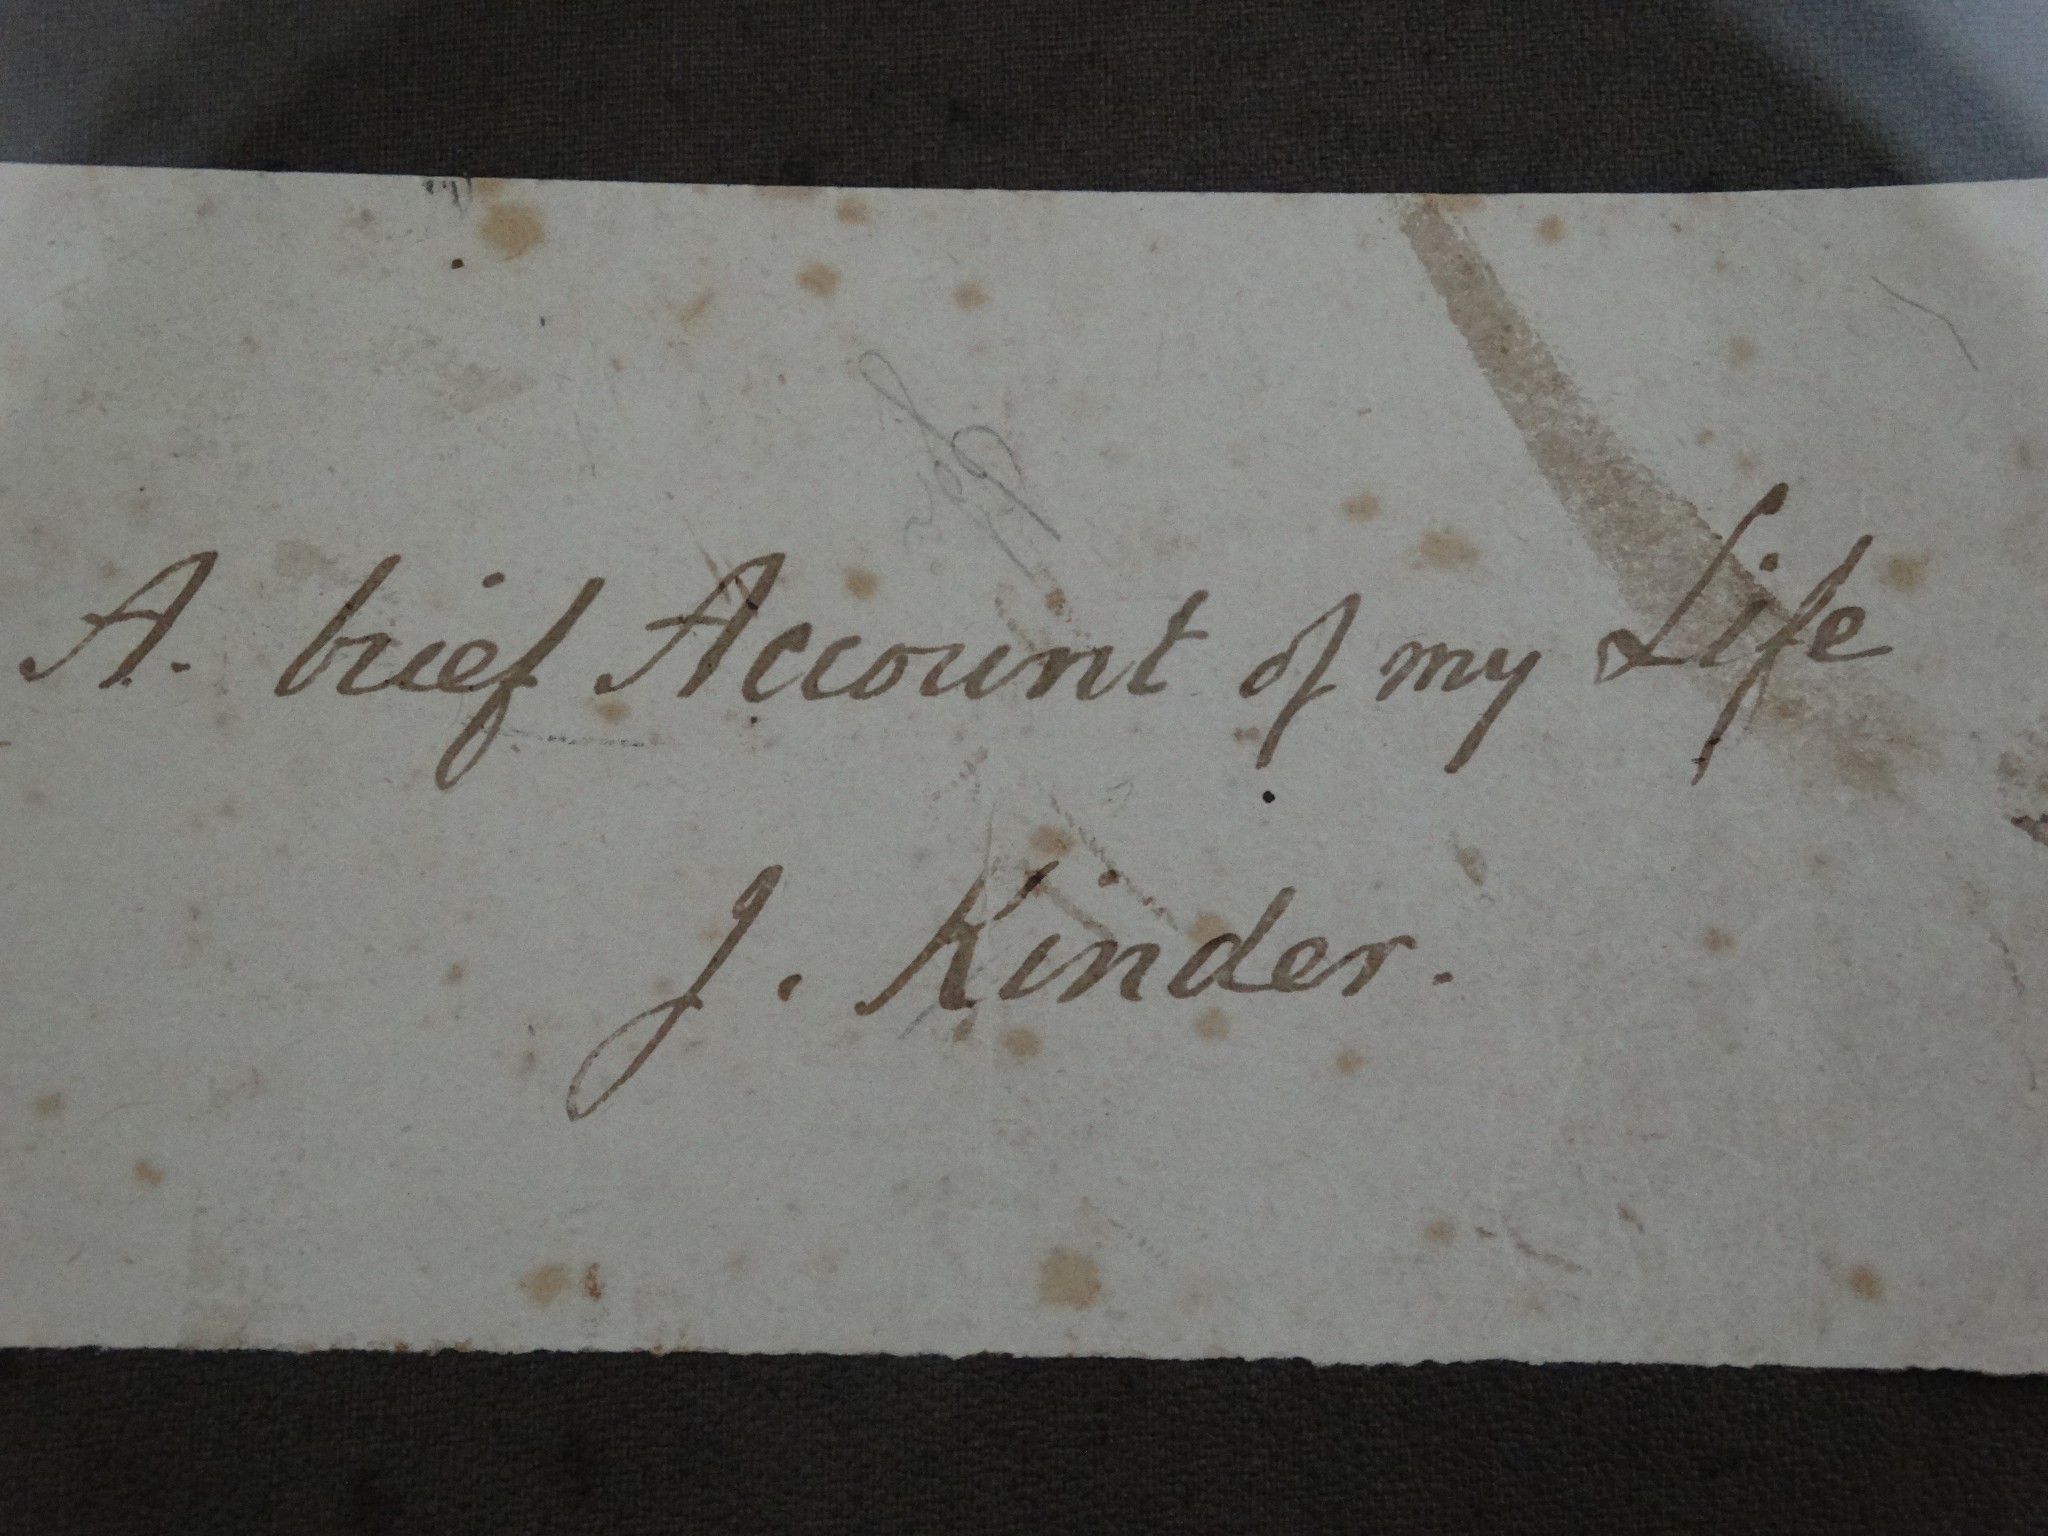 A. brief Account of my Life
J. Kinder.